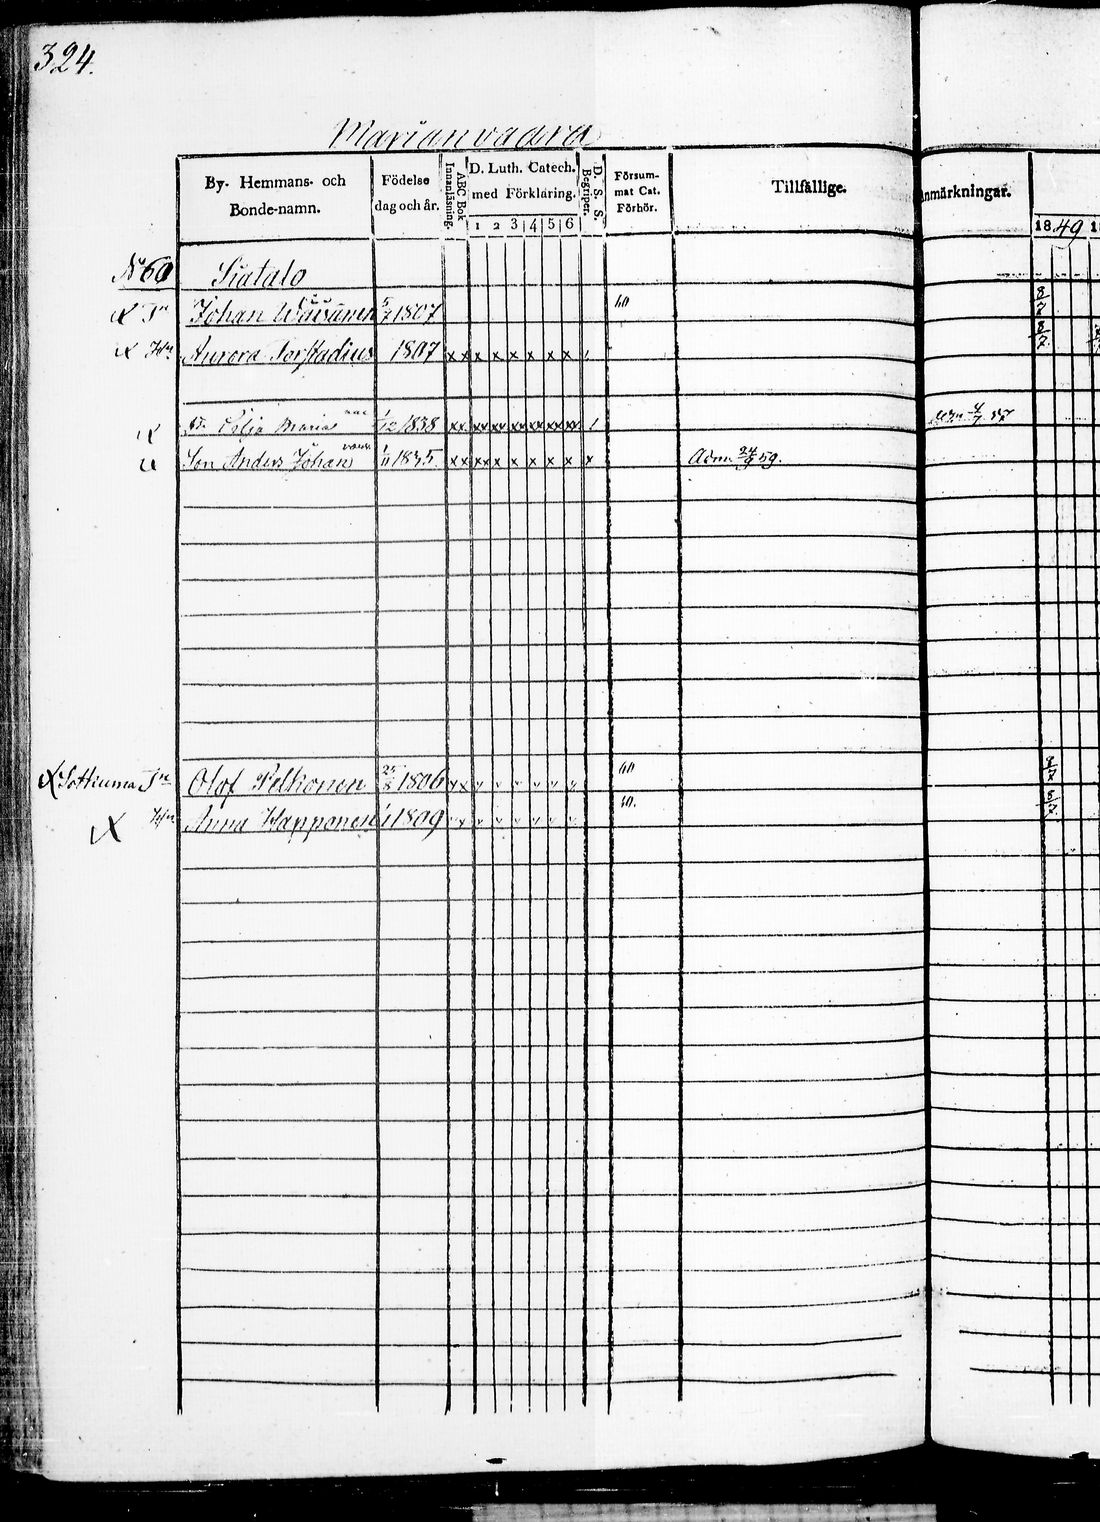 324.
Marianvaara
By- Hemmans- och Bonde-namn.
Födelse dag och år.
ABC Bok Innanläsning.
D. Luth. Catech. med Förklaring.
1 2 3 4 5 6
D. S. S. Begriper.
Försum-mat Cat. Förhör.
Tillfällige.
nmärkningar.
18 49 1
No 60 Siatalo
Johan Wäisänen 5/7 1807 40 8/7
Hu Aurora Forstadius 1807 x x x x x x x x 8/7
Maria 1/12 1838 xx xx xx xx xx xx xx 4/7 57
Son Anders Johan 1/11 1835. x x xx x x x x x x Adm. 24/9 59.
Olof Pelkonen 1806 40 8/7
Anna Happonen 1/1 1809 40. 8/7